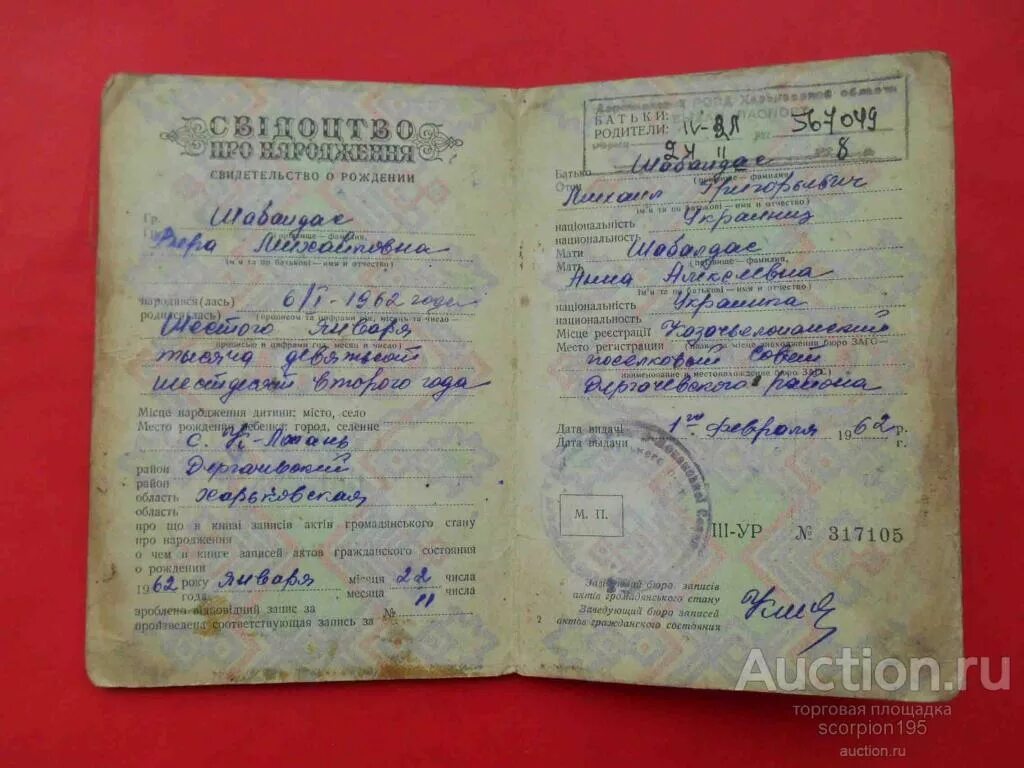 СВІДОЦТВО
ПРО НАРОДЖЕННЯ
СВИДЕТЕЛЬСТВО О РОЖДЕНИИ
Гр. Шабалдас
(прізвище — фамилия,
Вера Михайловна
ім'я та по батькові — имя и отчество)
народився(лась) 6/I - 1962 года
родился(лась) (прописом та цифрами рік, місяць та число —
Шестого Января
прописью и цифрами год, месяц и число)
тысяча девятьсот
шестдесят второго года
Місце народження дитини: місто, село
Место рождения ребенка: город, селение
с. К-Лопань
район Дергачевский
район
область Харьковская
область
про що в книзі записів актів громадянського стану
про народження
о чем в книге записей актов гражданского состояния
о рождении
1962 року Января місяця 22 числа
года месяца числа
зроблено відповідний запис за № 11
произведена соответствующая запись за
РОВД Харьковской области
ПАСПОРТ
БАТЬКИ:
РОДИТЕЛИ: 567049
Батько Шабалдас
Отец (прізвище — фамилия,
Михаил Григорьевич
ім'я та по батькові — имя и отчество)
національність Украинец
национальность
Мати Шабалдас
Мать (прізвище — фамилия,
Анна Алексеевна
ім'я та по батькові — имя и отчество)
національність Украинка
национальность
Місце реєстрації Казачьелопанский
Место регистрации (назва та місце знаходження бюро ЗАГС —
поселковый Совет
наименование и местонахождение бюро ЗАГС)
Дергачевского района
Дата видачі 1го февраля 1962 р.
Дата выдачи г.
М. П.
III-УР № 317105
Завідуючий бюро записів
актів громадянського стану
Заведующий бюро записей
2 актов гражданского состояния
Auction.ru
торговая площадка
scorpion195
auction.ru